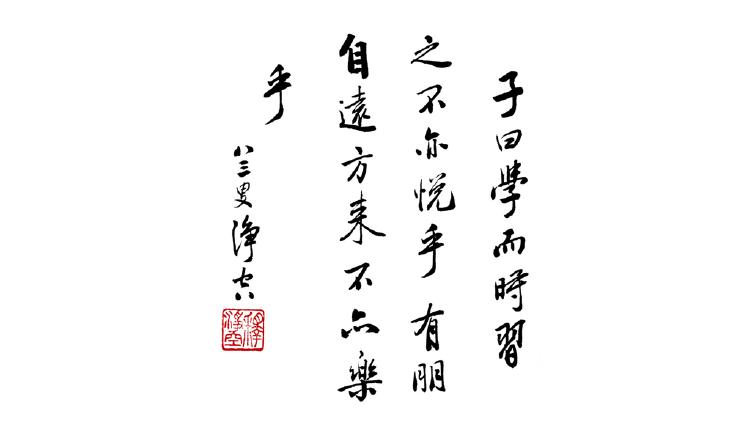 子曰學而時習
之不亦悅乎有朋
自遠方來不亦樂
乎
八三叟淨空
釋淨空